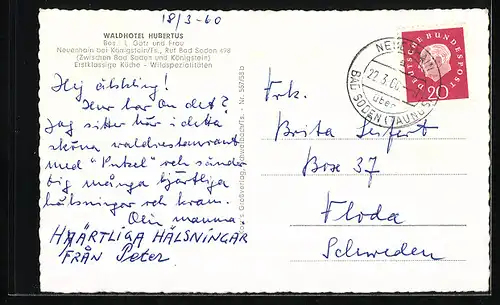 18/3-60
WALDHOTEL HUBERTUS
Bes.: L. Götz und Frau
Neuenhain bei Königstein/Ts., Ruf Bad Soden 498
(Zwischen Bad Soden und Königstein)
Erstklassige Küche - Wildspezialitäten
Hej älskling!
Hur har Du det?
Jag sitter här i detta
sköna waldrestaurant
med "Putzel" och sänder
dig många hjärtliga
hälsningar och kram.
Din mamma
HJÄRTLIGA HÄLSNINGAR
FRÅN Peter
22.3.60
über
BAD SODEN (TAUNUS)
DEUTSCHE BUNDESPOST
20
Frk.
Brita Seifert
Box 37
Floda
Schweden